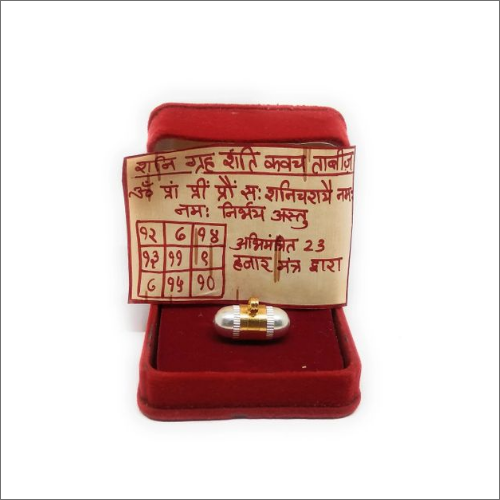 शनि ग्रह शंति कवच ताबीज
ॐ प्रां प्रीं प्रौं सः शनिचरायै नमः
नमः निर्भय अस्तु
१२ ७ १४
१३ ११ ९
८ १५ १०
अभिमंत्रित 23
हजार मंत्र द्वारा